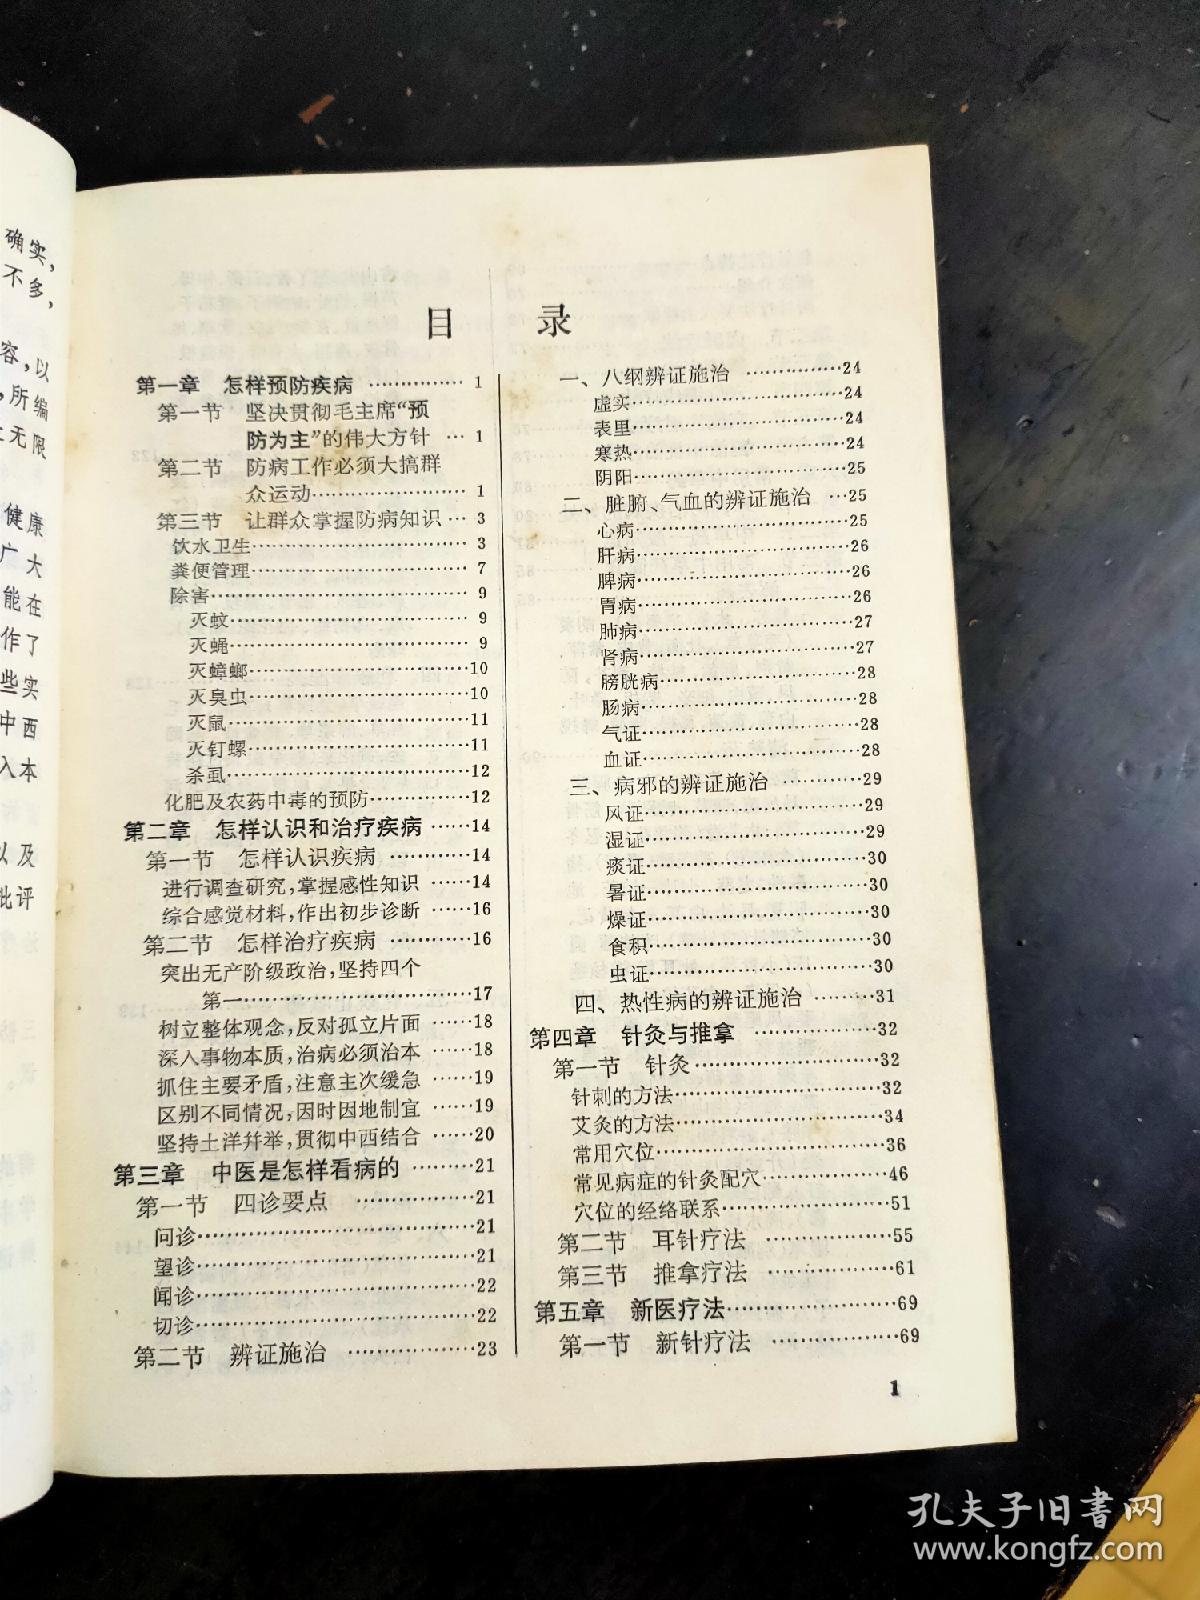 确实,
不多,
容,以
,所编
无限
健康
广大
能在
作了
些实
中西
入本
以及
批评
目 录
第一章 怎样预防疾病 …………… 1
第一节 坚决贯彻毛主席“预
防为主”的伟大方针 … 1
第二节 防病工作必须大搞群
众运动…………………… 1
第三节 让群众掌握防病知识… 3
饮水卫生………………………… 3
粪便管理………………………… 7
除害……………………………… 9
灭蚊…………………………… 9
灭蝇…………………………… 9
灭蟑螂…………………………10
灭臭虫…………………………10
灭鼠……………………………11
灭钉螺…………………………11
杀虱……………………………12
化肥及农药中毒的预防…………12
第二章 怎样认识和治疗疾病 ……14
第一节 怎样认识疾病 …………14
进行调查研究,掌握感性知识 ……14
综合感觉材料,作出初步诊断 ……16
第二节 怎样治疗疾病 …………16
突出无产阶级政治,坚持四个
第一……………………………17
树立整体观念,反对孤立片面 ……18
深入事物本质,治病必须治本 ……18
抓住主要矛盾,注意主次缓急 ……19
区别不同情况,因时因地制宜 ……19
坚持土洋并举,贯彻中西结合 ……20
第三章 中医是怎样看病的 ………21
第一节 四诊要点 ……………21
问诊………………………………21
望诊………………………………21
闻诊………………………………22
切诊………………………………22
第二节 辨证施治 ……………23
一、八纲辨证施治 ……………24
虚实……………………………24
表里……………………………24
寒热……………………………24
阴阳……………………………25
二、脏腑、气血的辨证施治 …25
心病……………………………25
肝病……………………………26
脾病……………………………26
胃病……………………………26
肺病……………………………27
肾病……………………………27
膀胱病…………………………28
肠病……………………………28
气证……………………………28
血证……………………………28
三、病邪的辨证施治 …………29
风证……………………………29
湿证……………………………29
痰证……………………………30
暑证……………………………30
燥证……………………………30
食积……………………………30
虫证……………………………30
四、热性病的辨证施治 ………31
第四章 针灸与推拿 ………………32
第一节 针灸………………………32
针刺的方法………………………32
艾灸的方法………………………34
常用穴位…………………………36
常见病症的针灸配穴……………46
穴位的经络联系…………………51
第二节 耳针疗法 ……………55
第三节 推拿疗法 ……………61
第五章 新医疗法……………………69
第一节 新针疗法 ……………69
1
孔夫子旧书网
www.kongfz.com